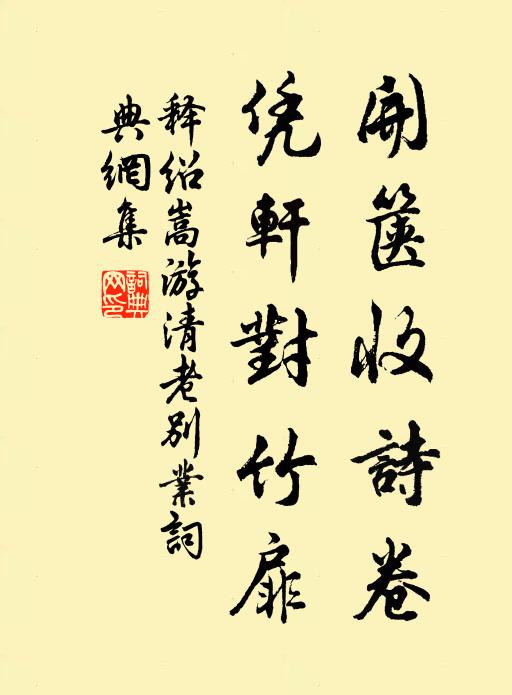 開篋收詩卷
凭軒對竹扉
释紹嵩游清老别業詞
典網集
詞典
网印